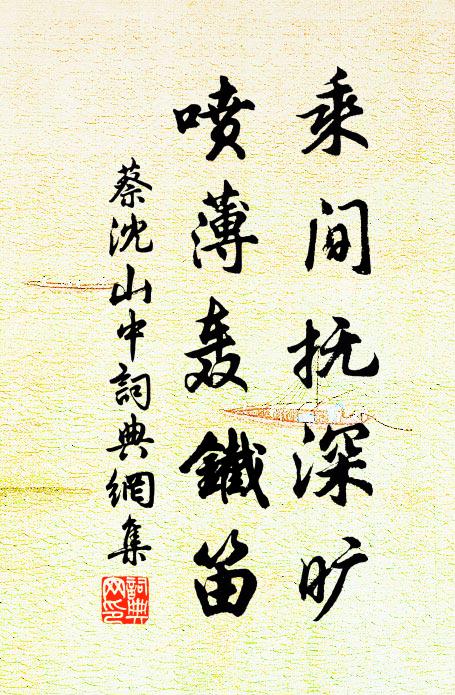 乘间抚深旷
喷薄轰鐵笛
蔡沈山中詞典網集
詞典网印